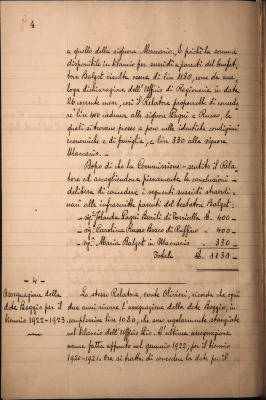 4
a quello della signora Maccario. E poichè la somma
disponibile in bilancio per sussidi a parenti del benefat-
tore Balzet risulta essere di lire 1130, come da ana-
loga dichiarazione dell'Ufficio di Ragioneria in data
26 corrente mese, così il Relatore proporrebbe di concede
re lire 400 caduna alle signore Pugni e Russo, le
quali si trovano presso a poco nelle identiche condizioni
economiche e di famiglia, e lire 330 alla signora
Maccario. -
Dopo di che la Commissione - sentito il Rela-
tore ed accogliendone pienamente le conclusioni -
delibera di concedere i seguenti sussidi straordi-
nari alle infrascritte parenti del testatore Balzet:
- sig.ra Jolanda Pugni Bariti di Torriella £. 400 -
- sig.ra Carolina Russo Bosco di Ruffino " 400 -
- sig.ra Maria Balzet in Maccario " 330 -
Totale £. 1130 -
- 4 -
Assegnazione della
dote Boggio per il
biennio 1922-1923.
Lo stesso Relatore, conte Olivieri, ricorda che ogni
due anni ricorre l'assegnazione della dote Boggio, in
complessive lire 1080, che sono regolarmente stanziate
nel bilancio dell'Ufficio Pio. L'ultima assegnazione
venne fatta appunto nel gennaio 1922, per il biennio
1920-1921. Ora si tratta di concedere la dote per il